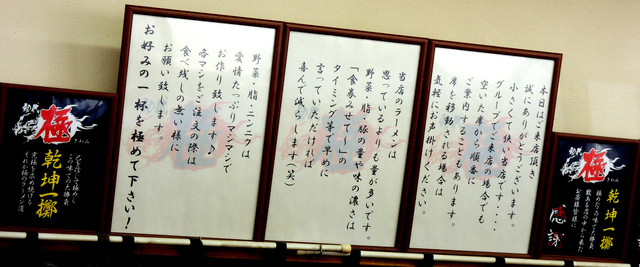 本日はご来店頂き
誠にありがとうございます。
小さくて狭い当店です・・・・
グループでご来店の場合でも
空いた席から順番に
ご案内することもあります。
席を移動される場合は
気軽にお声掛けください。
当店のラーメンは
思っているよりも量が多いです。
野菜・脂・豚の量や味の濃さは
「食券みせて〜」の
タイミング等で早めに
言っていただければ
喜んで減らします(笑)
野菜・脂・ニンニクは
愛情たっぷりマシマシで
お作り致します♪
各マシをご注文の際は
食べ残しの無い様に
お願い致します。
お好みの一杯を極めて下さい!
極
乾坤一擲
感謝
極
乾坤一擲